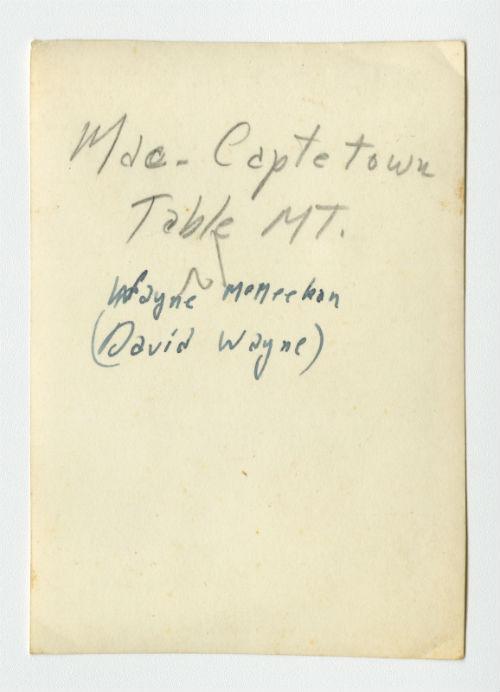 Mac- Captetown
Table MT.
Wayne McMeekan
(David Wayne)